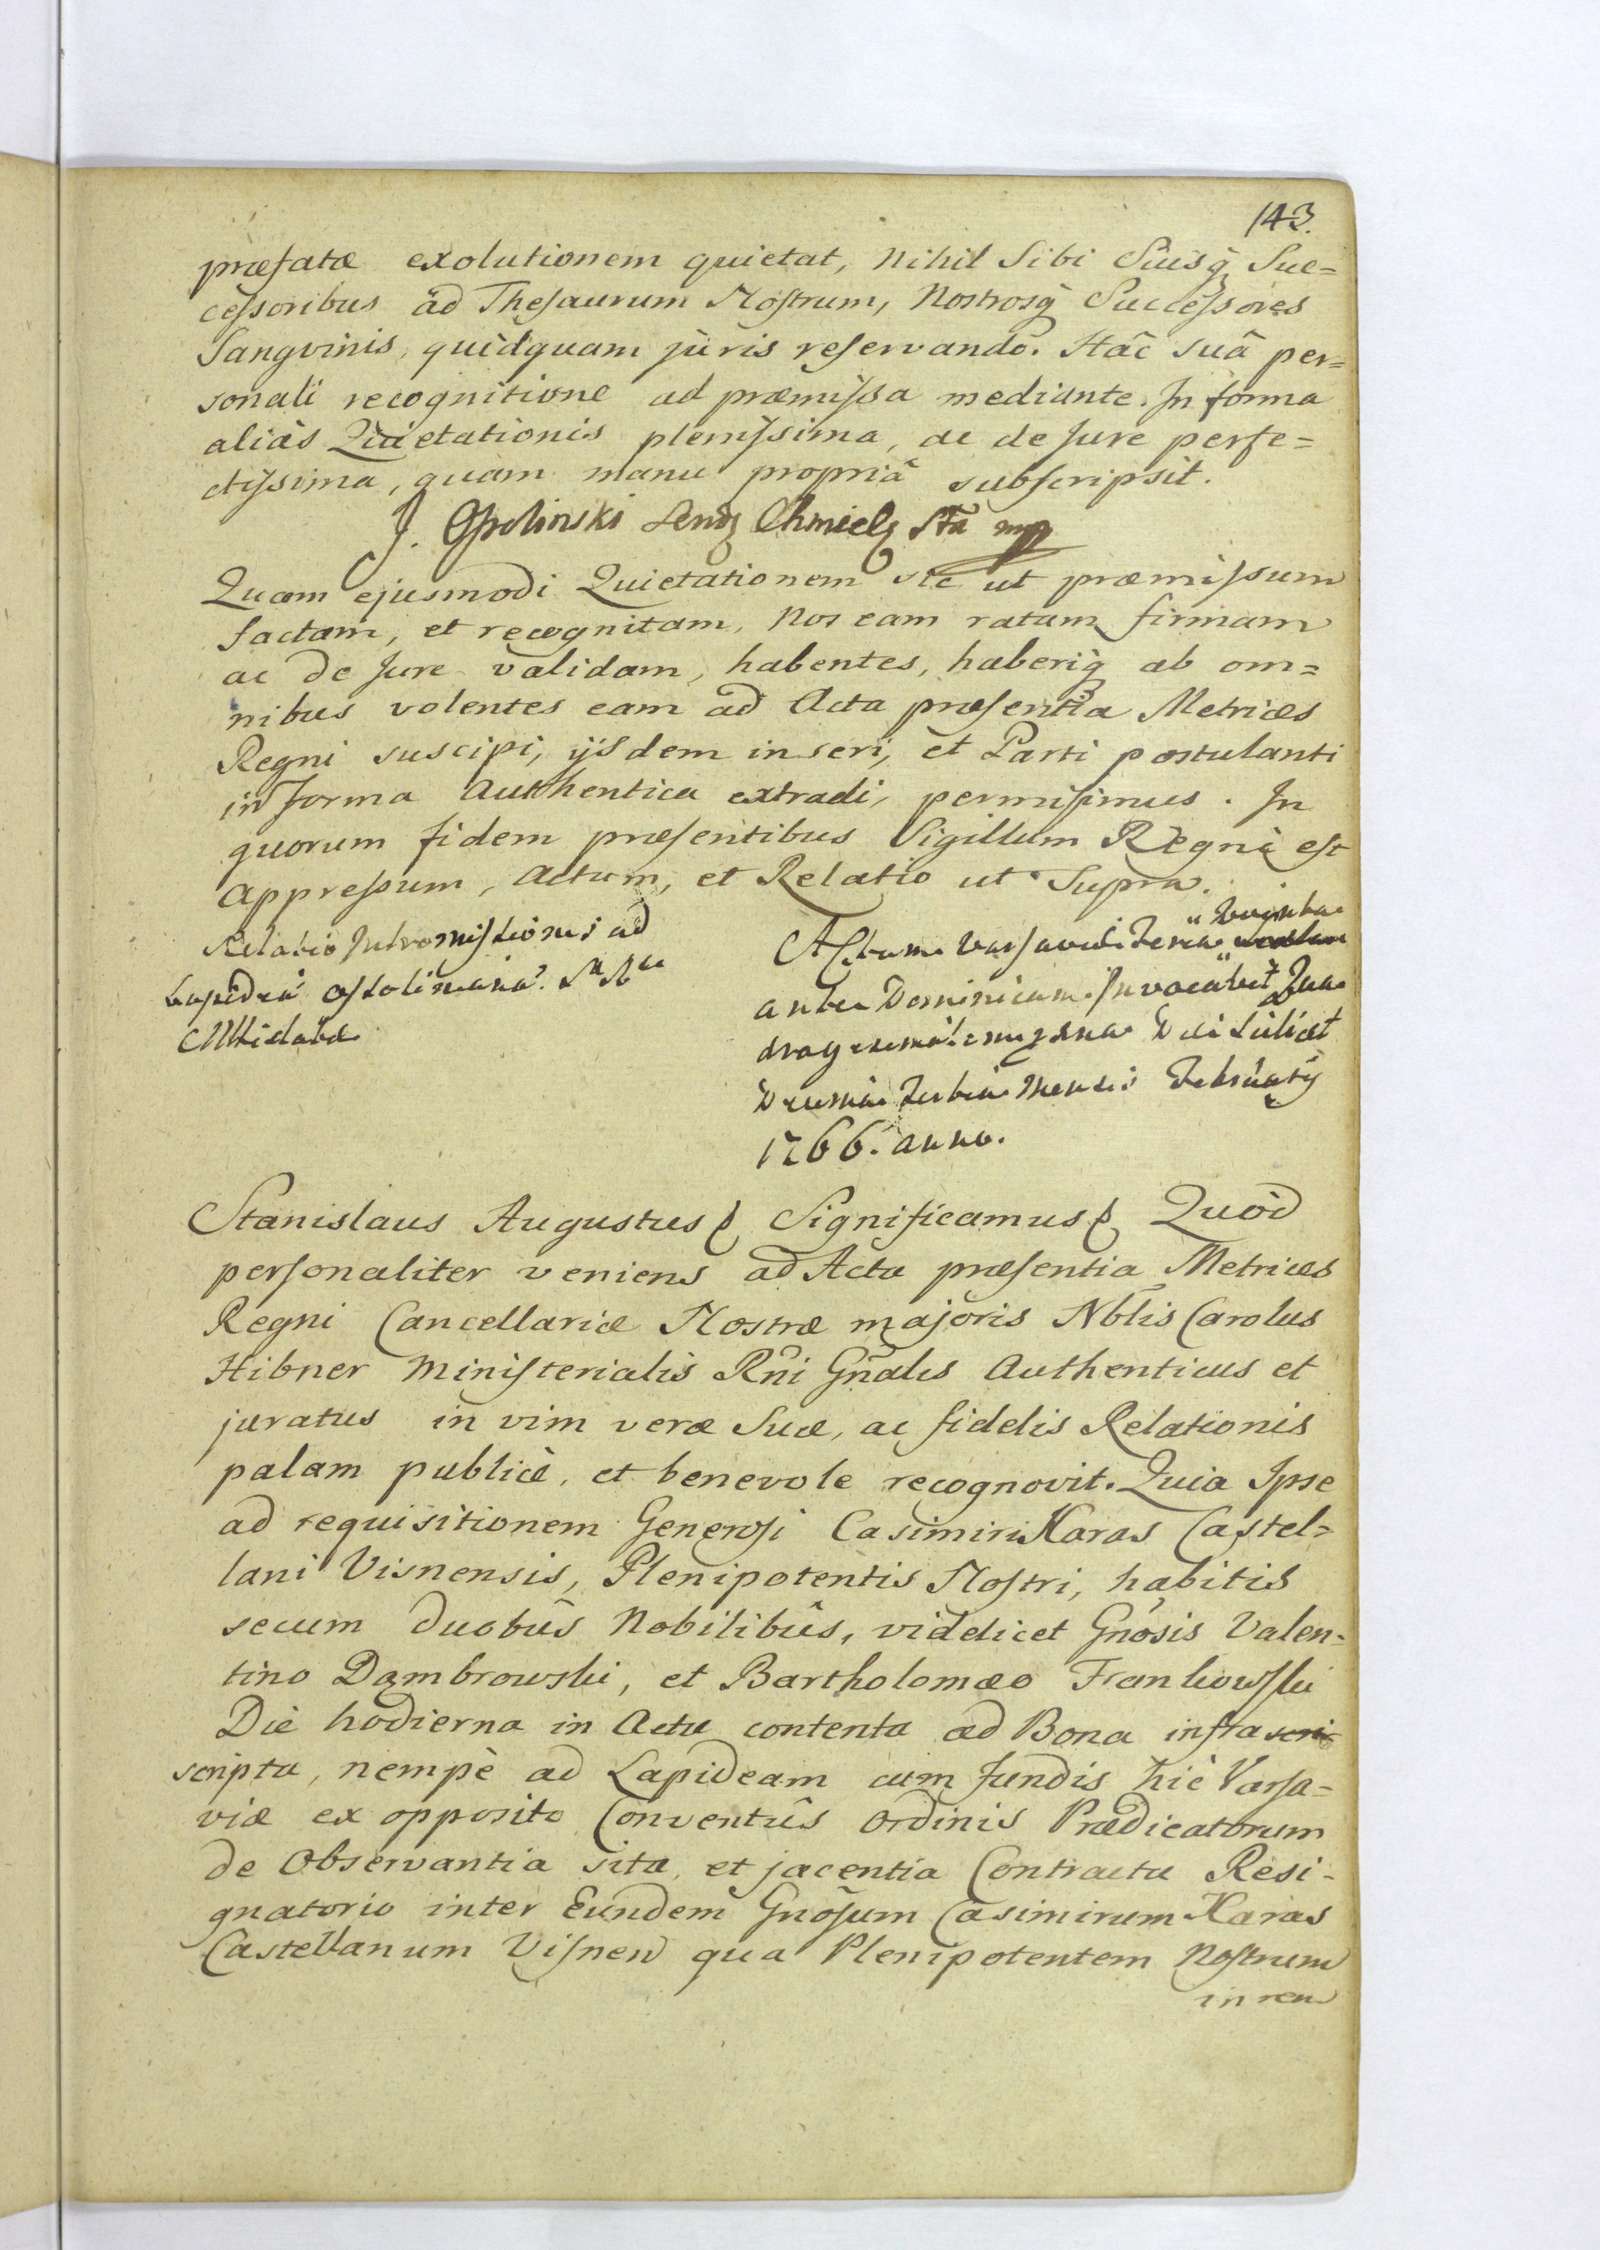 143.
præfatæ exolutionem quietat, Nihil Sibi Suisq̃ Suc=
cessoribus ad Thesaurum Nostrum, Nostrosq̃ Successores
Sangvinis, quidquam juris reservando. Hâc suâ per=
sonali recognitione ad præmissa mediante. In forma
aliàs Quietationis plenissima, ac de Jure perfe=
ctissima, quam manu propriâ subscripsit.
J. Opolinski Chmiel Sta mp
Quam ejusmodi Quietationem sic ut præmissum
factam, et recognitam, Nos eam ratam firmam
ac de Jure validam, habentes, haberiq̃ ab om=
nibus volentes eam ad Acta præsentia Metrices
Regni suscipi, ijsdem inseri, et Parti postulanti
in forma Authentica extradi, permisimus. In
quorum fidem præsentibus Sigillum Regni est
appressum, Actum, et Relatio ut Supra.
Relatio Intromissionis ad
Lapideã Ossolinianã
Actum Varsaviæ Feria Quinta
ante Dominicam Invocavit Qua
dragesimalem Die Scilicet
Decima Tertia Mensis Februarij
1766. anno.
Stanislaus Augustus Significamus Quòd
personaliter veniens ad Acta præsentia Metrices
Regni Cancellariæ Nostræ majoris Nblis Carolus
Hibner Ministerialis Rñi Gñalis Authenticus et
juratus in vim veræ Suæ, ac fidelis Relationis
palam publicè, et benevole recognovit. Quia Ipse
ad requisitionem Generosi Casimiri Karas Castel=
lani Visnensis, Plenipotentis Nostri, habitis
secum duobûs Nobilibûs, videlicet Gnosis Valen=
tino Dąmbrowski, et Bartholomæo Frankowski
Die hodierna in Actu contenta ad Bona infra scri
scripta, nempè ad Lapideam cum fundis hic Varsa=
viæ ex opposito Conventûs Ordinis Prædicatorum
de Observantia sita, et jacentia Contractu Resi=
gnatorio inter Eundem Gnõsum Casimirum Karas
Castellanum Visnen qua Plenipotentem Nostrum
in rem